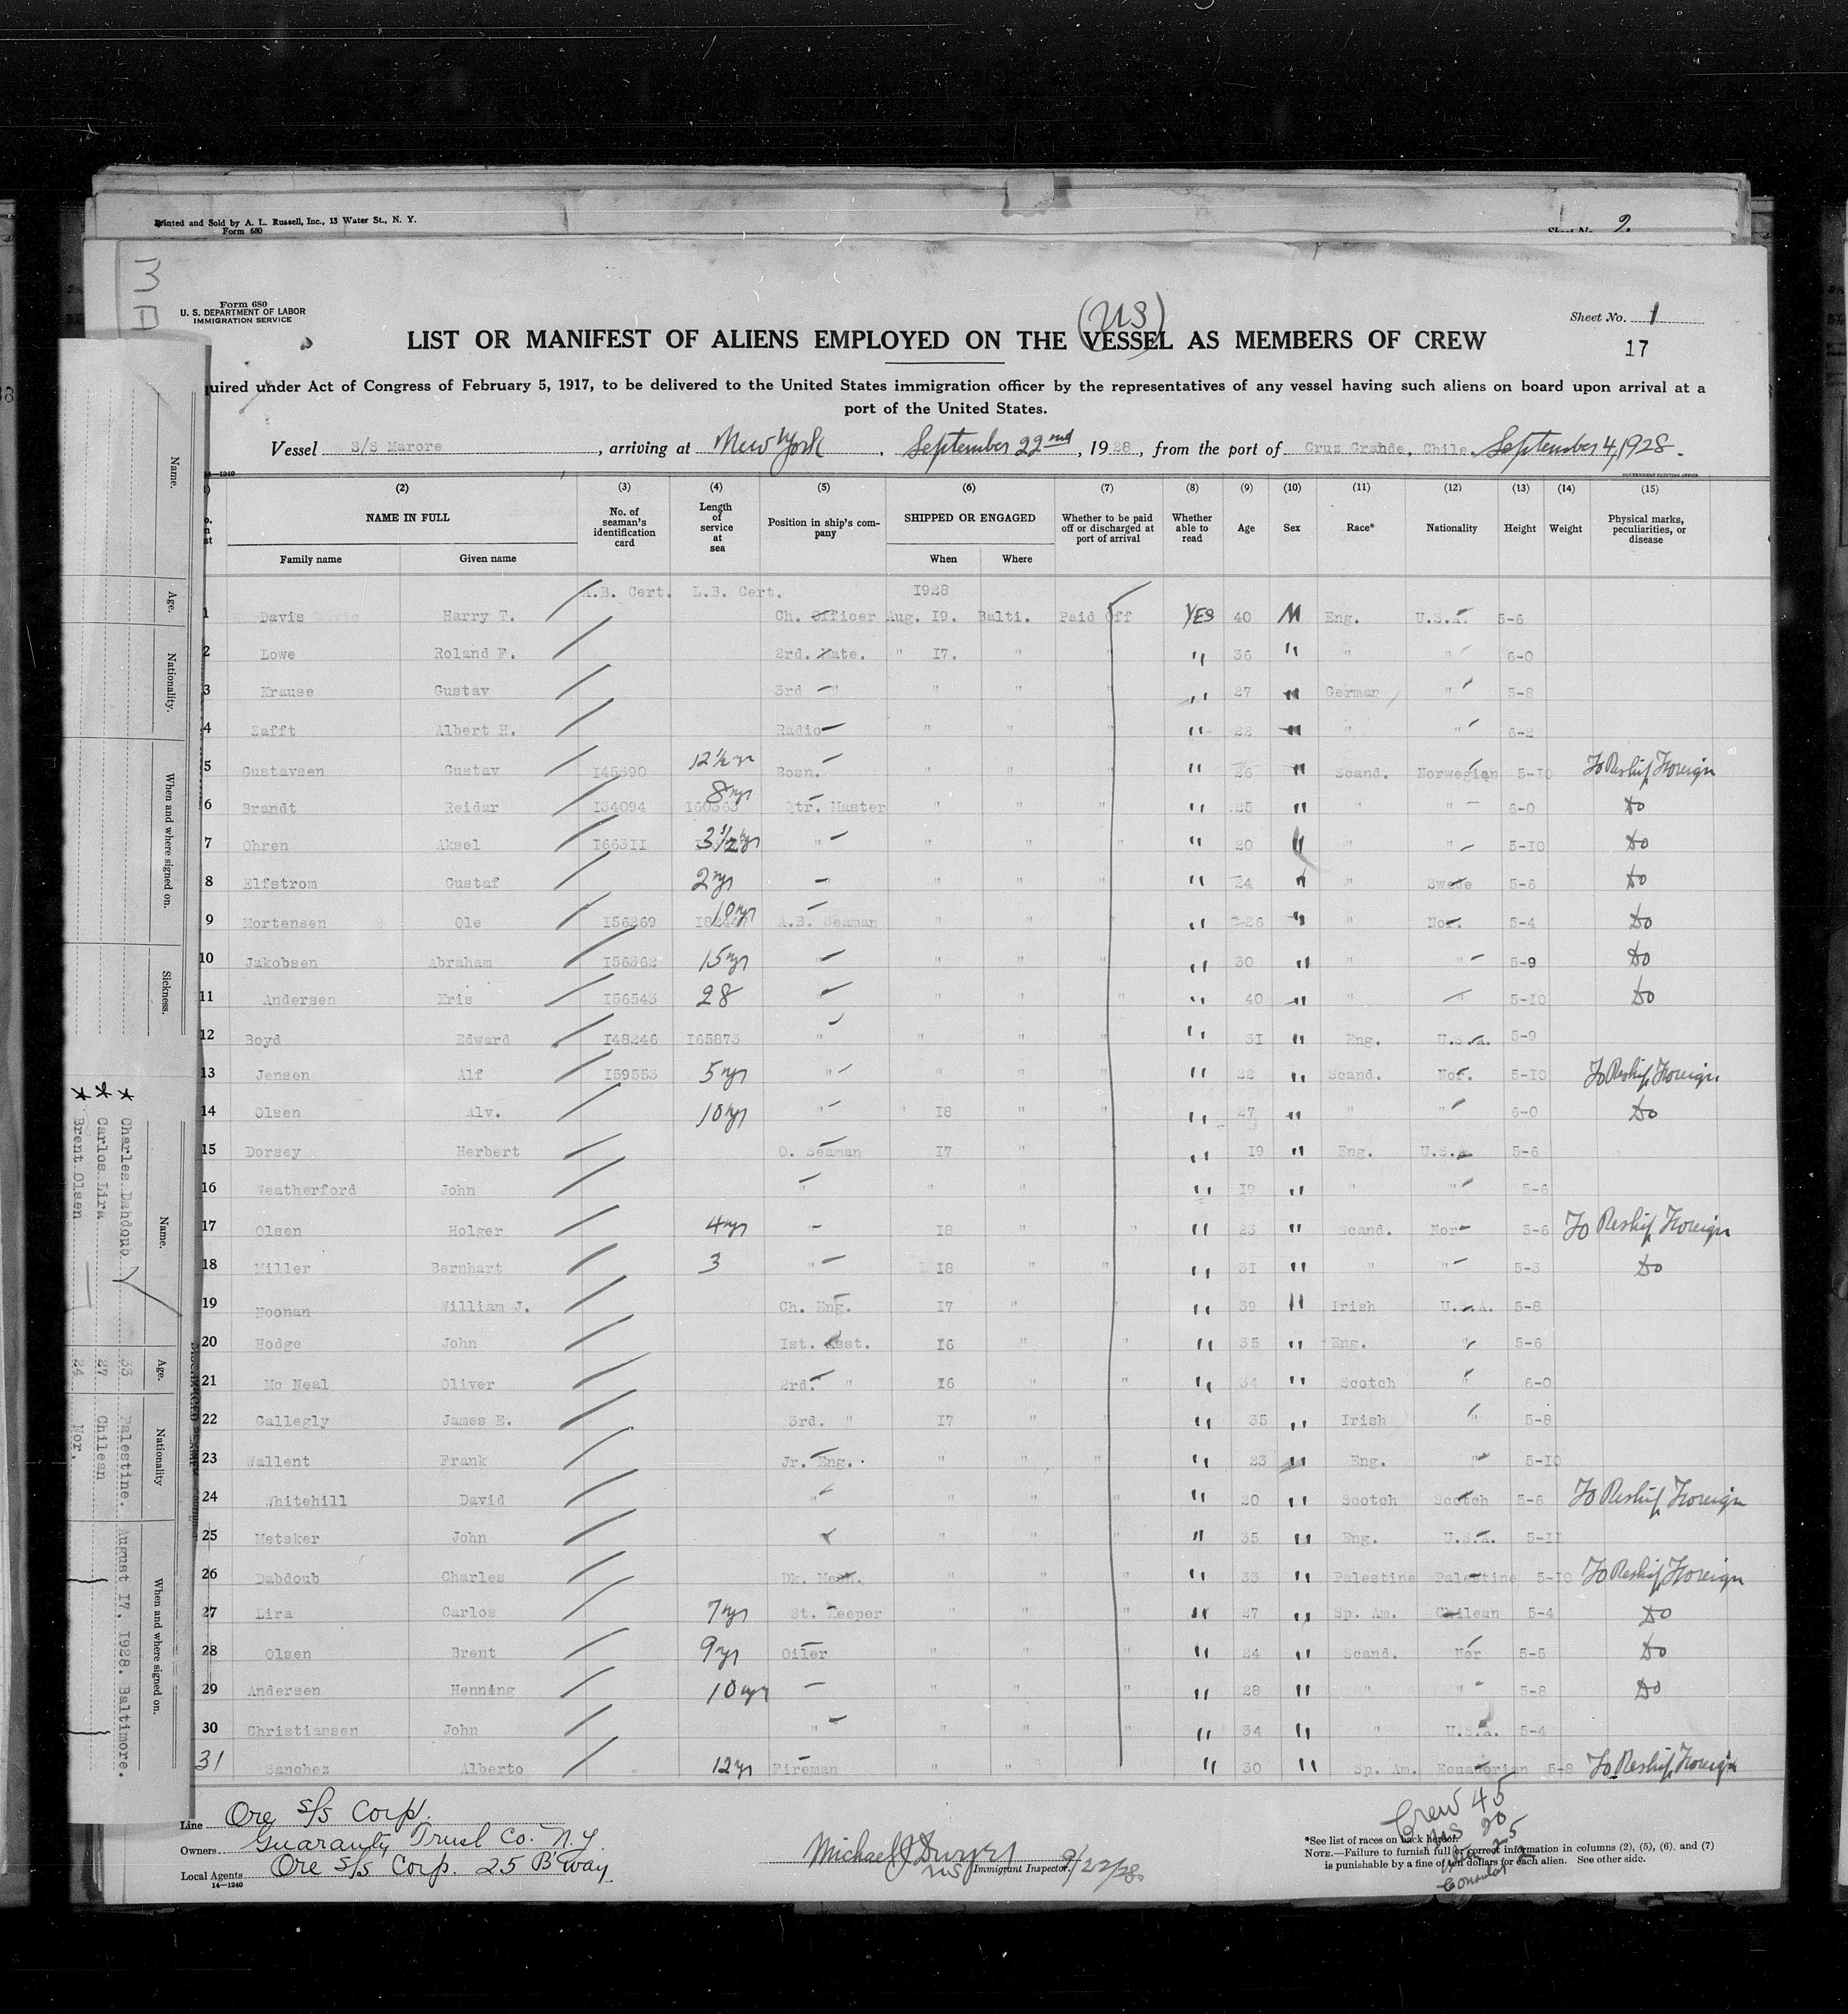 Printed and Sold by A. L. Russell, Inc., 13 Water St., N. Y.
Form 680
Sheet No. 2.
Form 680
U. S. DEPARTMENT OF LABOR
IMMIGRATION SERVICE
(US)
Sheet No. 1
LIST OR MANIFEST OF ALIENS EMPLOYED ON THE VESSEL AS MEMBERS OF CREW
17
quired under Act of Congress of February 5, 1917, to be delivered to the United States immigration officer by the representatives of any vessel having such aliens on board upon arrival at a
port of the United States.
Vessel S/S Marore, arriving at New York, September 22nd, 1928, from the port of Cruz Grande, Chile. September 4, 1928.
14—1240 GOVERNMENT PRINTING OFFICE
(2) (3) (4) (5) (6) (7) (8) (9) (10) (11) (12) (13) (14) (15)
NAME IN FULL No. of seaman's identification card Length of service at sea Position in ship's company SHIPPED OR ENGAGED Whether to be paid off or discharged at port of arrival Whether able to read Age Sex Race* Nationality Height Weight Physical marks, peculiarities, or disease
Family name Given name When Where
A.B. Cert. L.B. Cert. 1928
1 Davis Harry T. Ch. Officer Aug. 19. Balti. Paid Off YES 40 M Eng. U.S.A. 5-6
2 Lowe Roland F. 2rd. Mate. " 17. " " " 36 " " " 6-0
3 Krause Gustav 3rd " " " " " 27 " German " 5-8
4 Zafft Albert H. Radio " " " " 22 " " " 6-2
5 Gustavsen Gustav 145390 12½ yr Bosn. " " " " 26 " Scand. Norwegian 5-10 To Reship Foreign
6 Brandt Reidar 134094 160363 8yr Qtr. Master " " " " 25 " " " 6-0 Do
7 Ohren Aksel 166311 3½yr " " " " " 20 " " " 5-10 Do
8 Elfstrom Gustaf 2yr " " " " " 24 " " Swede 5-6 Do
9 Mortensen Ole 156269 10yr A.B. Seaman " " " " 26 " " Nor. 5-4 Do
10 Jakobsen Abraham 156362 15yr " " " " " 30 " " " 5-9 Do
11 Andersen Kris 156543 28 " " " " " 40 " " " 5-10 Do
12 Boyd Edward 148246 165873 " " " " " 31 " Eng. U.S.A. 5-9
13 Jensen Alf 159553 5yr " " " " " 22 " Scand. Nor. 5-10 To Reship Foreign
14 Olsen Alv. 10yr " " 18 " " " 27 " " " 6-0 Do
15 Dorsey Herbert O. Seaman 17 " " " 19 " Eng. U.S.A. 5-6
16 Weatherford John " " " " " 19 " " " 5-6
17 Olsen Holger 4yr 18 " " " 23 " Scand. Nor 5-6 To Reship Foreign
18 Miller Bernhart 3 " 18 " " " 31 " " " 5-3 Do
19 Noonan William J. Ch. Eng. 17 " " 39 " Irish U.S.A. 5-8
20 Hodge John 1st. Asst. 16 " " " 35 " Eng. " 5-6
21 Mc Neal Oliver 2rd. " 16 " " " 34 " Scotch " 6-0
22 Gallegly James E. 3rd. " 17 " " " 35 " Irish " 5-8
23 Wallent Frank Jr. Eng. " " " " 23 " Eng. " 5-10
24 Whitehill David " " " " " 20 " Scotch Scotch 5-6 To Reship Foreign
25 Metsker John " " " " 35 " Eng. U.S.A. 5-11
26 Dabdoub Charles Dk. Mech. " " " " 33 " Palestine Palestine 5-10 To Reship Foreign
27 Lira Carlos 7yr St. Keeper " " " " 27 " Sp. Am. Chilean 5-4 Do
28 Olsen Brent 9yr Oiler " " " " 24 " Scand. Nor 5-5 Do
29 Andersen Henning 10yr " " " " 28 " " " 5-8 Do
30 Christiansen John " " " " " 34 " " U.S.A. 5-4
31 Sanchez Alberto 12yr Fireman " " " " 30 " Sp. Am. Ecuadorian 5-8 To Reship Foreign
Line Ore S/S Corp.
Owners Guaranty Trust Co. N.Y.
Local Agents Ore S/S Corp. 25 B'way
14—1240
Michael J Dwyer
US Immigrant Inspector. 9/22/28.
Crew 45
US 20
25
*See list of races on back hereof.
NOTE.—Failure to furnish full or correct information in columns (2), (5), (6), and (7)
is punishable by a fine of ten dollars for each alien. See other side.
Name. Age. Nationality. When and where signed on. Sickness.
Name. Age. Nationality When and where signed on.
* Charles Dabdoub 33 Palestine. August 17, 1928. Baltimore.
* Carlos Lira 27 Chilean
* Brent Olsen 24 Nor.